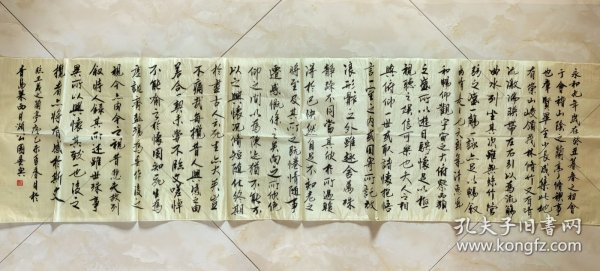 永和九年歲在癸丑暮春之初會
于會稽山陰之蘭亭脩禊事
也群賢畢至少長咸集此地
有崇山峻嶺茂林脩竹又有清
流激湍映帶左右引以為流觴
曲水列坐其次雖無絲竹管
弦之盛一觴一詠亦足以暢敘
幽情是日也天朗氣清惠風
和暢仰觀宇宙之大俯察品類
之盛所以遊目騁懷足以極
視聽之娛信可樂也夫人之相
與俯仰一世或取諸懷抱悟
言一室之內或因寄所託放
浪形骸之外雖趣舍萬殊
靜躁不同當其欣於所遇暫
得於己快然自足不知老之
將至及其所之既惓情隨事
遷感慨係之矣向之所欣俛
仰之間以為陳迹猶不能不
以之興懷況脩短隨化終期
於盡古人云死生亦大矣豈
不痛哉每攬昔人興感之由
若合一契未嘗不臨文嗟悼
不能喻之於懷固知一死生為
虛誕齊彭殤為妄作後之
視今亦由今之視昔悲夫故列
敘時人錄其所述雖世殊事
異所以興懷其致一也後之
攬者亦將有感於斯文
臨王羲之蘭亭序 春月於
青島萊西月湖公園
孔夫子旧书网
www.kongfz.com